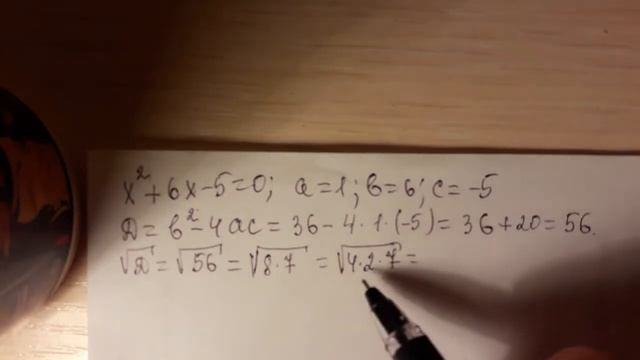 x²+6x-5=0; a=1; b=6; c=-5
D=b²-4ac=36-4·1·(-5)=36+20=56.
√D=√56=√8·7=√4·2·7=